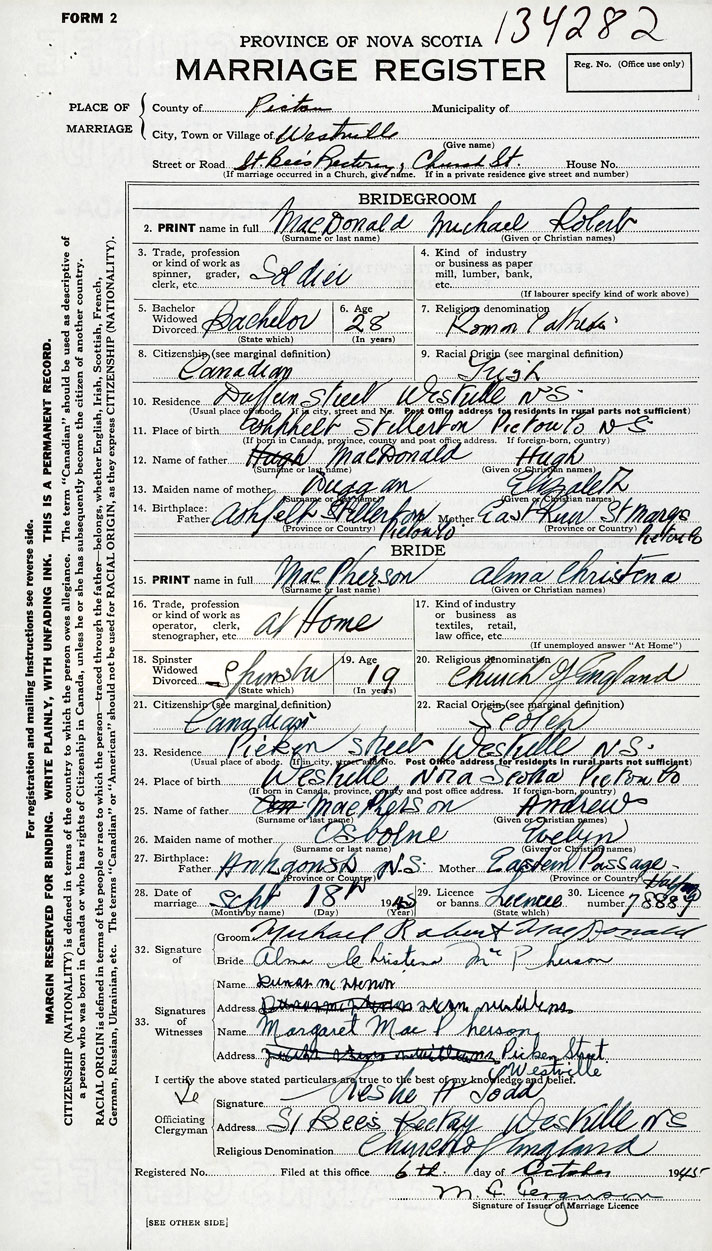 FORM 2
134282
PROVINCE OF NOVA SCOTIA
MARRIAGE REGISTER
Reg. No. (Office use only)
PLACE OF MARRIAGE
County of Pictou Municipality of
City, Town or Village of Westville
(Give name)
Street or Road St. Bees Rectory, Church St. House No.
(If marriage occurred in a Church, give name. If in a private residence give street and number)
BRIDEGROOM
2. PRINT name in full MacDonald Michael Robert
(Surname or last name) (Given or Christian names)
3. Trade, profession or kind of work as spinner, grader, clerk, etc. Soldier
4. Kind of industry or business as paper mill, lumber, bank, etc.
(If labourer specify kind of work above)
5. Bachelor Widowed Divorced Bachelor
(State which)
6. Age 28
(In years)
7. Religious denomination Roman Catholic
8. Citizenship (see marginal definition) Canadian
9. Racial Origin (see marginal definition) Irish
10. Residence Street Westville N.S.
(Usual place of abode. If in city, street and No. Post Office address for residents in rural parts not sufficient)
11. Place of birth Stellerton Pictou Co N.S.
(If born in Canada, province, county and post office address. If foreign-born, country)
12. Name of father Hugh MacDonald Hugh
(Surname or last name) (Given or Christian names)
13. Maiden name of mother Duggan Elizabeth
(Surname or last name) (Given or Christian names)
14. Birthplace: Father Stellerton Pictou Co Mother East River St Marys Pictou Co
(Province or Country) (Province or Country)
BRIDE
15. PRINT name in full MacPherson Alma Christena
(Surname or last name) (Given or Christian names)
16. Trade, profession or kind of work as operator, clerk, stenographer, etc. at Home
17. Kind of industry or business as textiles, retail, law office, etc.
(If unemployed answer "At Home")
18. Spinster Widowed Divorced Spinster
(State which)
19. Age 19
(In years)
20. Religious denomination Church of England
21. Citizenship (see marginal definition) Canadian
22. Racial Origin (see marginal definition) Scotch
23. Residence Picken Street Westville N.S.
(Usual place of abode. If in city, street and No. Post Office address for residents in rural parts not sufficient)
24. Place of birth Westville Nova Scotia Pictou Co
(If born in Canada, province, county and post office address. If foreign-born, country)
25. Name of father MacPherson Andrew
(Surname or last name) (Given or Christian names)
26. Maiden name of mother Osborne Evelyn
(Surname or last name) (Given or Christian names)
27. Birthplace: Father Antigonish N.S. Mother Eastern Passage Halifax
(Province or Country) (Province or Country)
28. Date of marriage Sept 18th 1945
(Month by name) (Day) (Year)
29. Licence or banns Licence
(State which)
30. Licence number 78889
32. Signature of
Groom Michael Robert MacDonald
Bride Alma Christena McPherson
33. Signatures of Witnesses
Name
Address
Name Margaret MacPherson
Address Picken Street Westville
I certify the above stated particulars are true to the best of my knowledge and belief.
Officiating Clergyman
Signature Leslie A Todd
Address St Bees Rectory Westville N S
Religious Denomination Church of England
Registered No. Filed at this office 6th day of October 1945
M. F. Ferguson
Signature of Issuer of Marriage Licence
[SEE OTHER SIDE]
For registration and mailing instructions see reverse side.
MARGIN RESERVED FOR BINDING. WRITE PLAINLY, WITH UNFADING INK. THIS IS A PERMANENT RECORD.
CITIZENSHIP (NATIONALITY) is defined in terms of the country to which the person owes allegiance. The term "Canadian" should be used as descriptive of
a person who was born in Canada or who has rights of Citizenship in Canada, unless he or she has subsequently become the citizen of another country.
RACIAL ORIGIN is defined in terms of the people or race to which the person—traced through the father—belongs, whether English, Irish, Scottish, French,
German, Russian, Ukrainian, etc. The terms "Canadian" or "American" should not be used for RACIAL ORIGIN, as they express CITIZENSHIP (NATIONALITY).